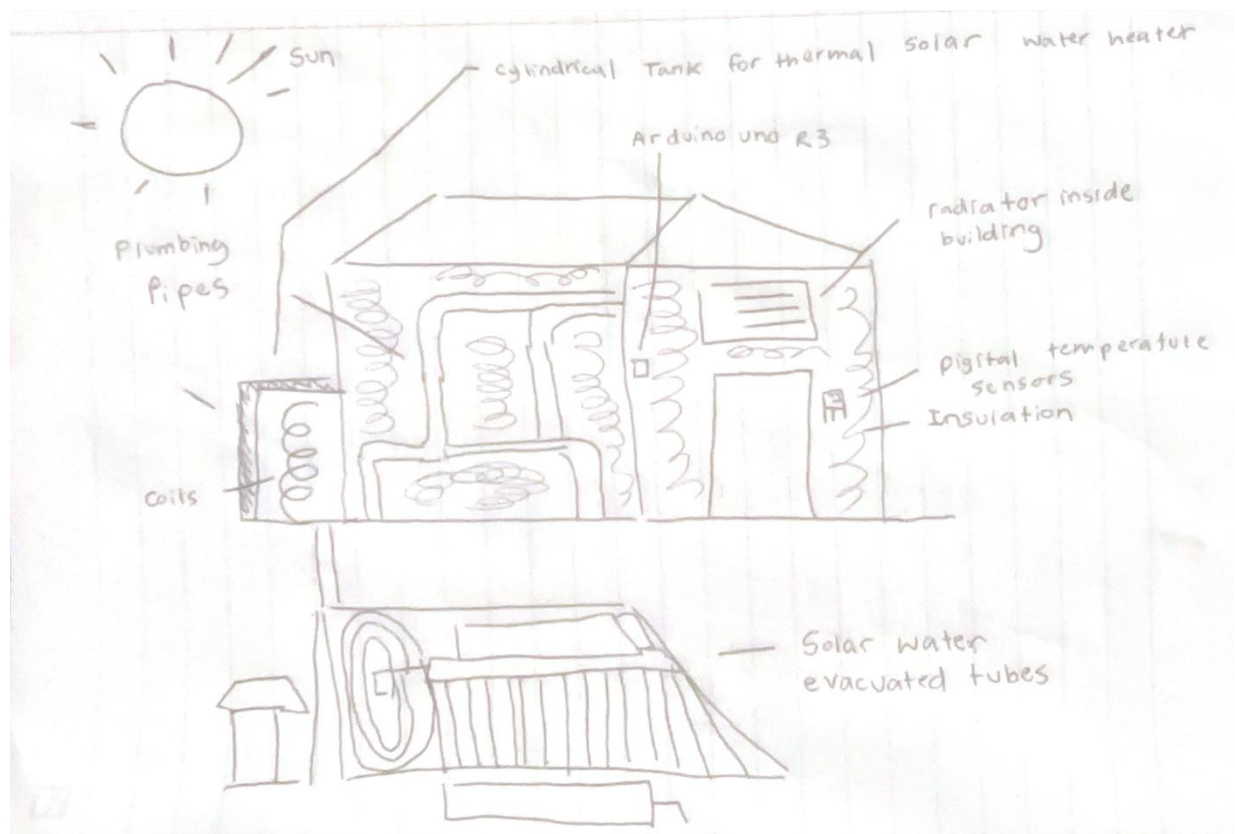 Sun
cylindrical Tank for thermal solar water heater
Arduino uno R3
radiator inside
building
Plumbing
Pipes
Digital temperature
sensors
Insulation
coils
Solar water
evacuated tubes